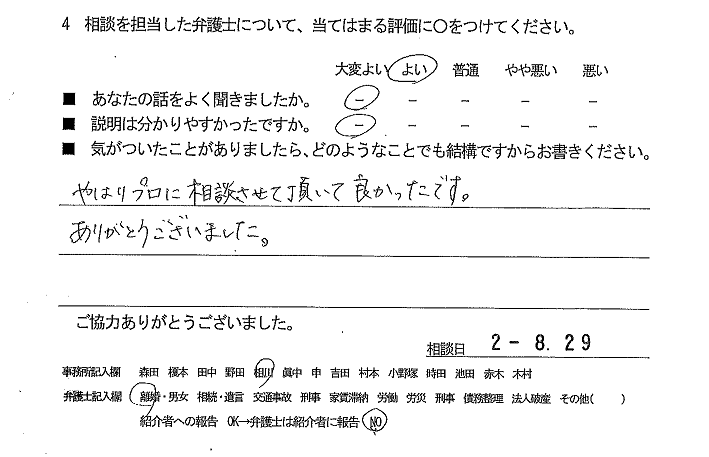 4 相談を担当した弁護士について、当てはまる評価に○をつけてください。
大変よい よい 普通 やや悪い 悪い
■ あなたの話をよく聞きましたか。 － － － － －
■ 説明は分かりやすかったですか。 － － － － －
■ 気がついたことがありましたら、どのようなことでも結構ですからお書きください。
やはりプロに相談させて頂いて良かったです。
ありがとうございました。
ご協力ありがとうございました。
相談日 2-8.29
事務所記入欄 森田 榎本 田中 野田 相川 眞中 申 吉田 村本 小野塚 時田 池田 赤木 木村
弁護士記入欄 離婚・男女 相続・遺言 交通事故 刑事 家賃滞納 労働 労災 刑事 債務整理 法人破産 その他( )
紹介者への報告 OK→弁護士は紹介者に報告 NO